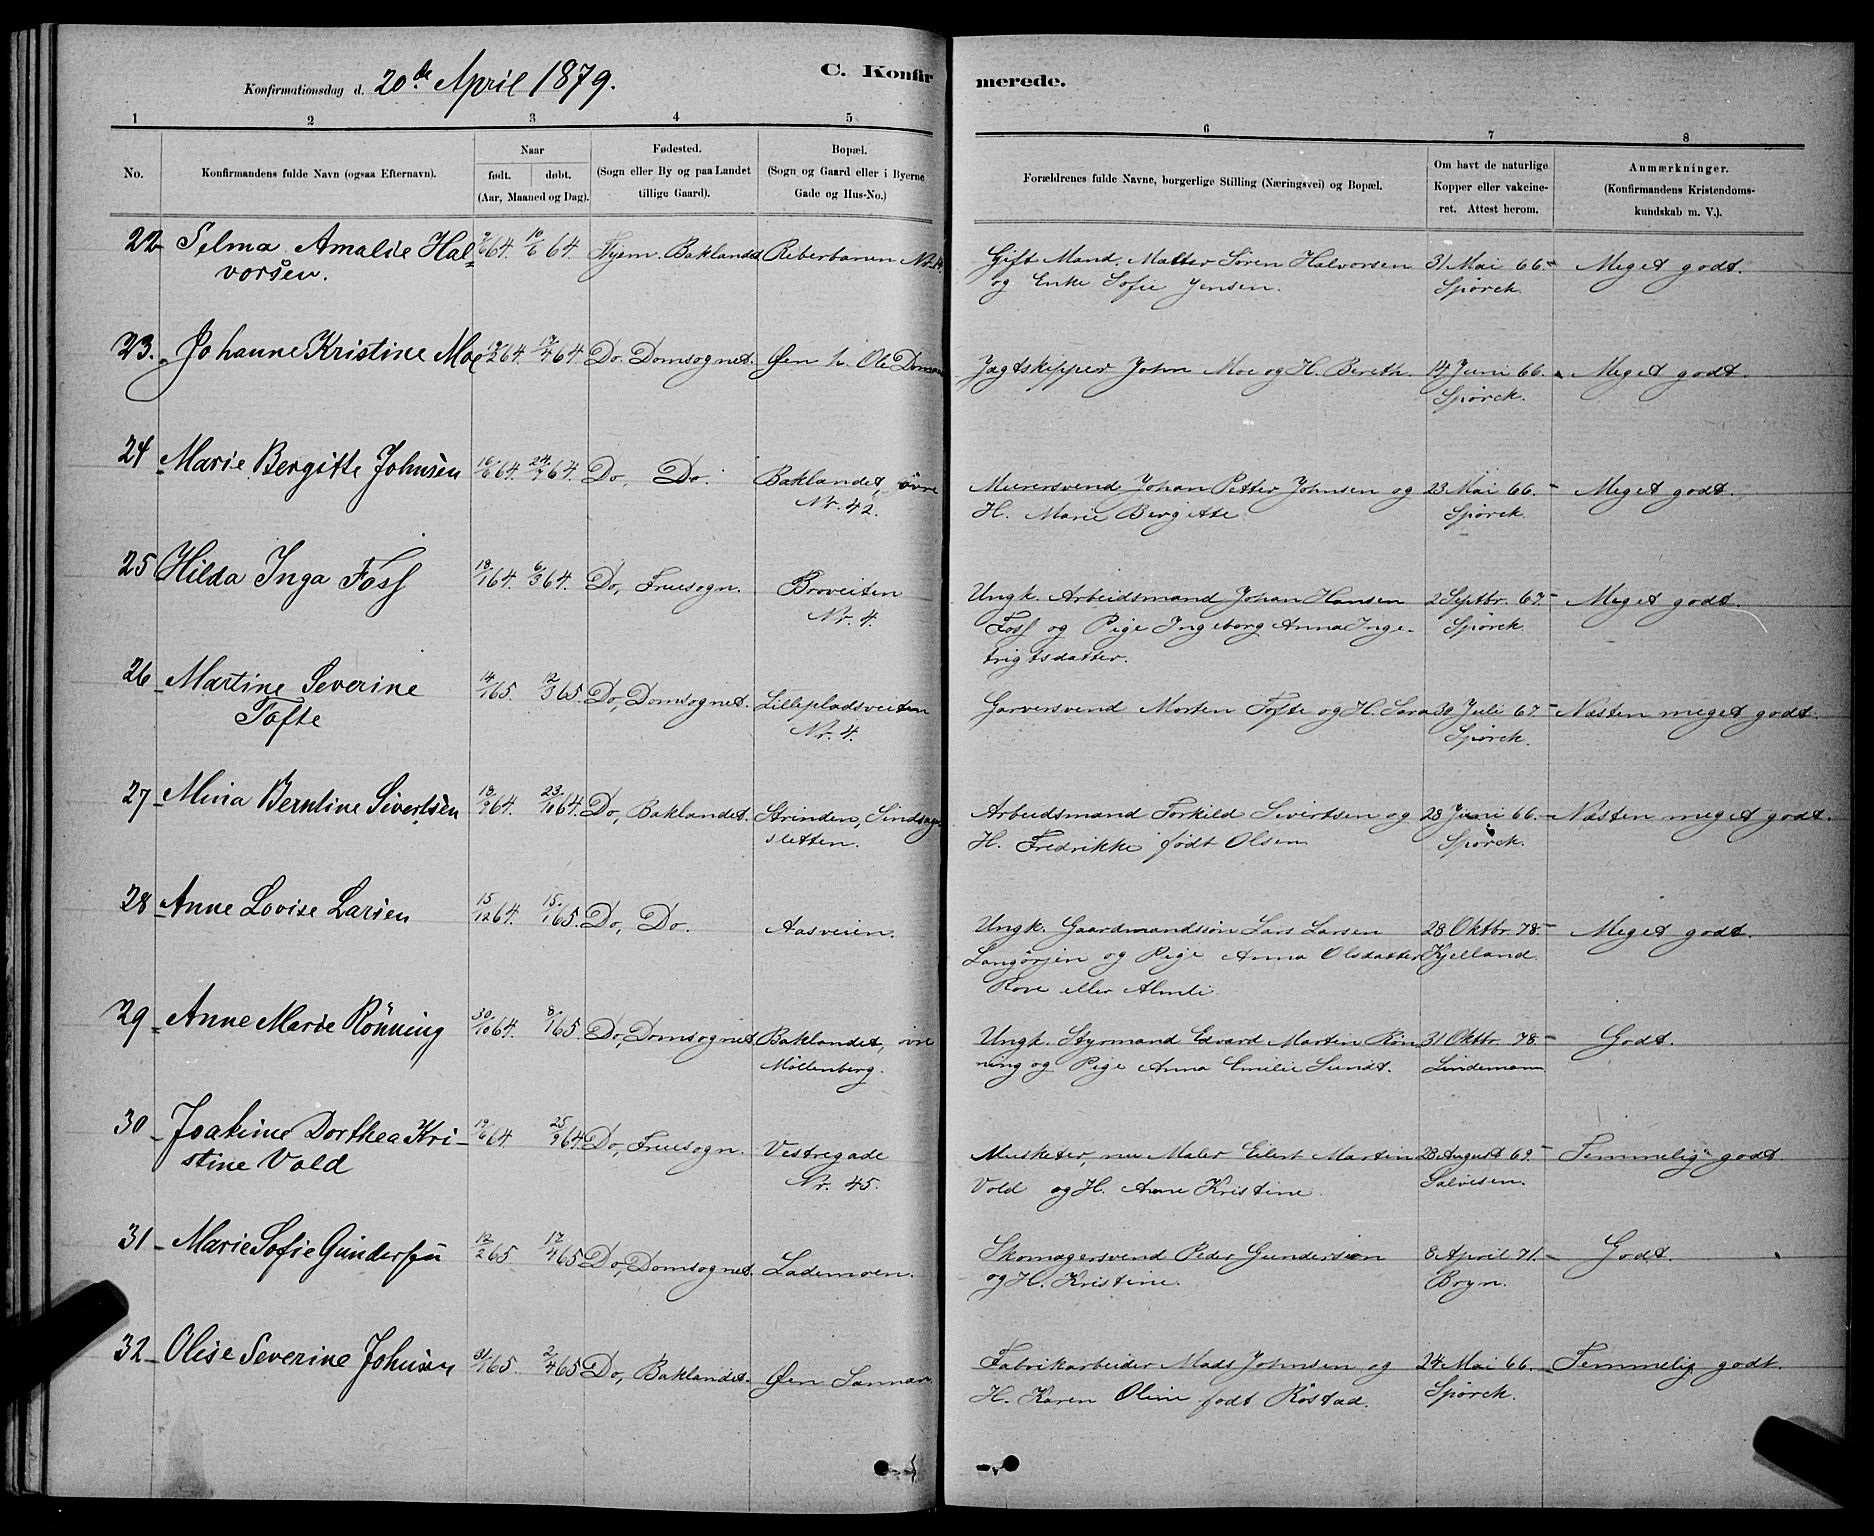 Konfirmationsdag d. 20de April 1879.
C. Konfirmerede.
1 2 3 4 5 6 7 8
No.
Konfirmandens fulde Navn (ogsaa Efternavn).
Naar
født. døbt.
(Aar, Maaned og Dag).
Fødested.
(Sogn eller By og paa Landet
tillige Gaard).
Bopæl.
(Sogn og Gaard eller i Byerne
Gade og Hus-No.)
Forældrenes fulde Navne, borgerlige Stilling (Næringsvei) og Bopæl.
Om havt de naturlige
Kopper eller vakcine-
ret. Attest herom.
Anmærkninger.
(Konfirmandens Kristendoms-
kundskab m. V.).
22 Selma Amalie Hal-
vorsen.
64. 64. Baklandet Reberbanen
Gift Mand, Matter Søren Halvorsen
og Enke Sofie Jensen.
31 Mai 66.
Spörck.
Meget godt.
23. Johanne Kristine Moe
64. 17/4 64. Do. Domsognet. Øen h. Ole
Jægtskipper John Moe og H. Bereth.
14 Juni 66.
Spörck.
Meget godt.
24 Marie Bergitte Johnsen
16/6 64. 24/7 64. Do, Do. Baklandet, övre
Nr. 42.
Murersvend Johan Petter Johnsen og
H. Marie Bergitte
23 Mai 66.
Spörck.
Meget godt.
25 Hilda Inga Foss
18/1 64. 6/3 64. Do, Fruesogn. Broveiten
Nr. 4.
Ungk. Arbeidsmand Johan Hansen
Foss og Pige Ingeborg Anna Inge-
brigtsdatter.
2 Septbr. 67.
Spörck.
Meget godt.
26 Martine Severine
Tofte
14/1 65. 12/3 65. Do, Domsognet. Lillepladsveiten
Nr. 4.
Garversvend Morten Tofte og H. Sara
30 Juli 67.
Spörck.
Næsten meget godt.
27 Mina Berntine Sivertsen
18/9 64. 23/10 64. Do, Baklandet. Strinden,
sletten.
Arbeidsmand Torkild Sivertsen og
H. Fredrikke født Olsen
28 Juni 66.
Spörck.
Næsten meget godt.
28 Anne Lovise Larsen
15/12 64. 15/1 65. Do, Do. Aasveien.
Ungk. Gaardmandssön Lars Larsen
Langörjen og Pige Anna Olsdatter
Rove eller Almli.
28 Oktbr. 78.
Kjelland.
Meget godt.
29 Anne Marie Rönning
30/10 64. 8/1 65. Do, Domsognet Baklandet, övre
Möllenberg.
Ungk. Styrmand Edvard Martin Rön-
ning og Pige Anna Emilie Sundt.
31 Oktbr. 78.
Lindemann
Godt.
30 Joakime Dorthea Kri-
stine Vold
19/6 64 25/9 64. Do, Fruesogn. Vestregade
Nr. 45.
Musketer, nu Maler Eilert Martin
Vold og H. Anne Kristine.
28 August 69.
Salvesen.
Temmelig godt.
31 Marie Sofie Gundersen
12/2 65. 17/4 65 Do, Domsognet. Lademoen.
Skomagersvend Peder Gundersen
og H. Kristine.
8 April 71.
Bryn.
Godt.
32 Olise Severine Johnsen
31/1 65. 2/4 65. Do, Baklandet. Øen Sannan
Fabrikarbeider Mads Johnsen og
H. Karen Oline født Röstad.
24 Mai 66.
Spörck.
Temmelig godt.